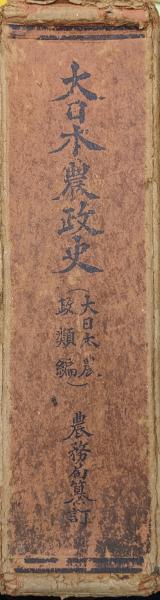 大日本農政史
(大日本農
政類編)
農務局纂訂